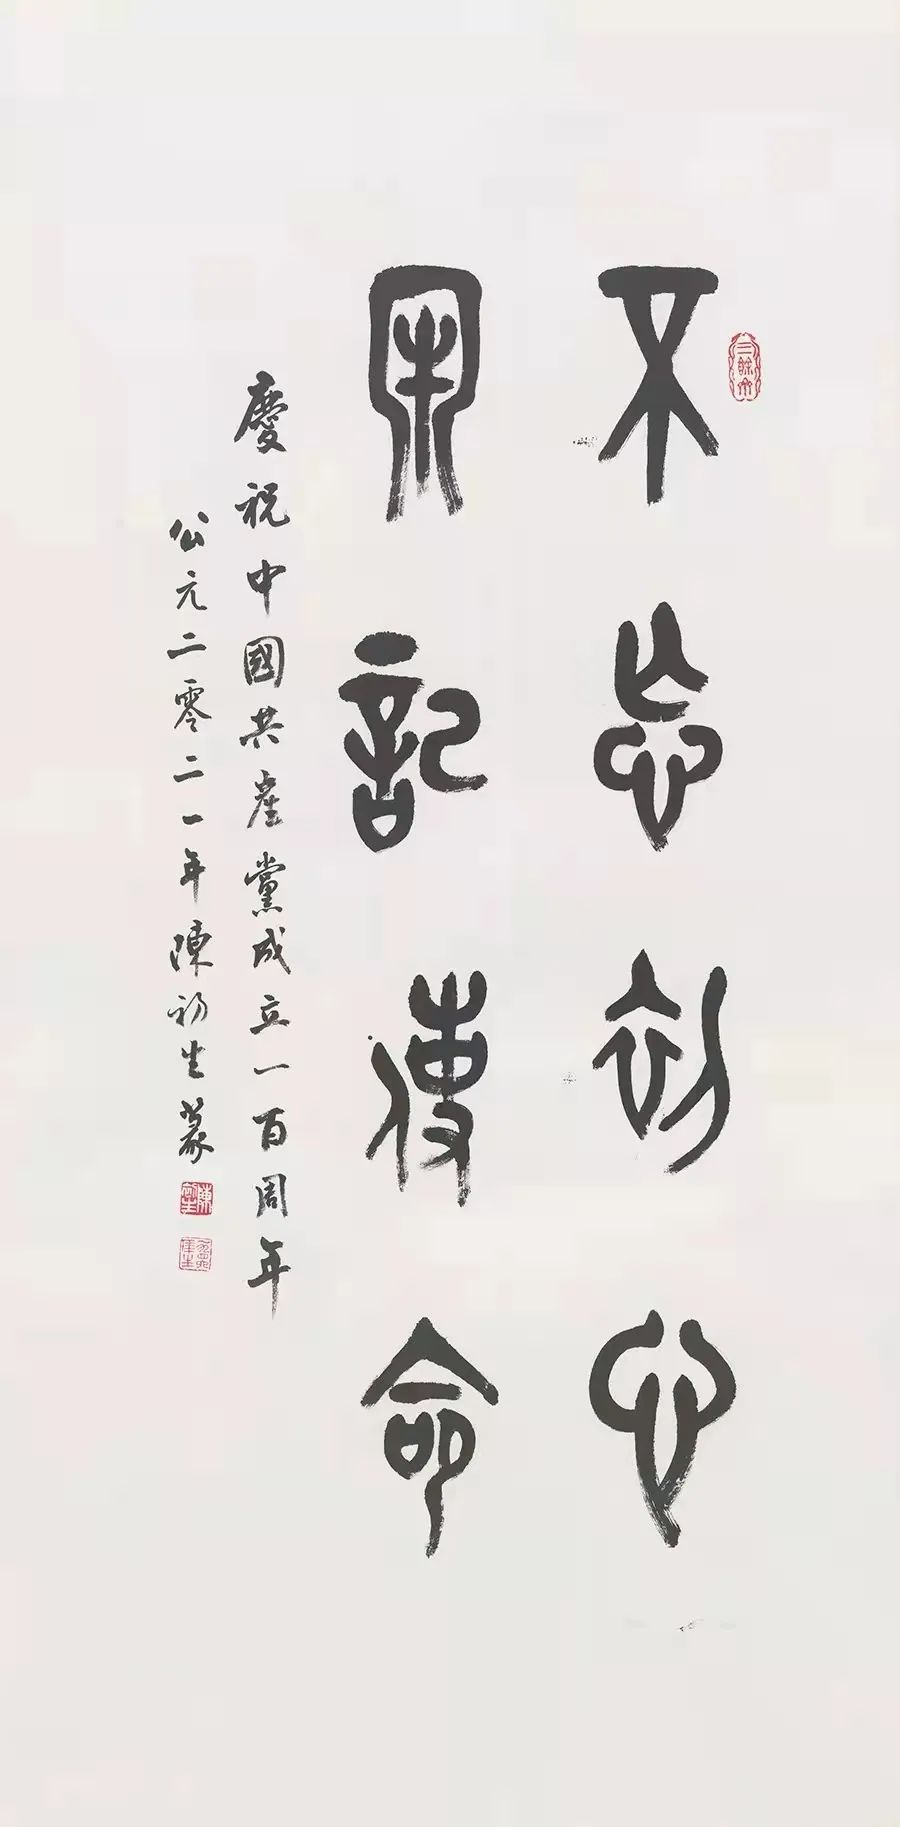 三餘齋
不忘初心
牢記使命
慶祝中國共產黨成立一百周年
公元二零二一年陳初生篆
陳初生